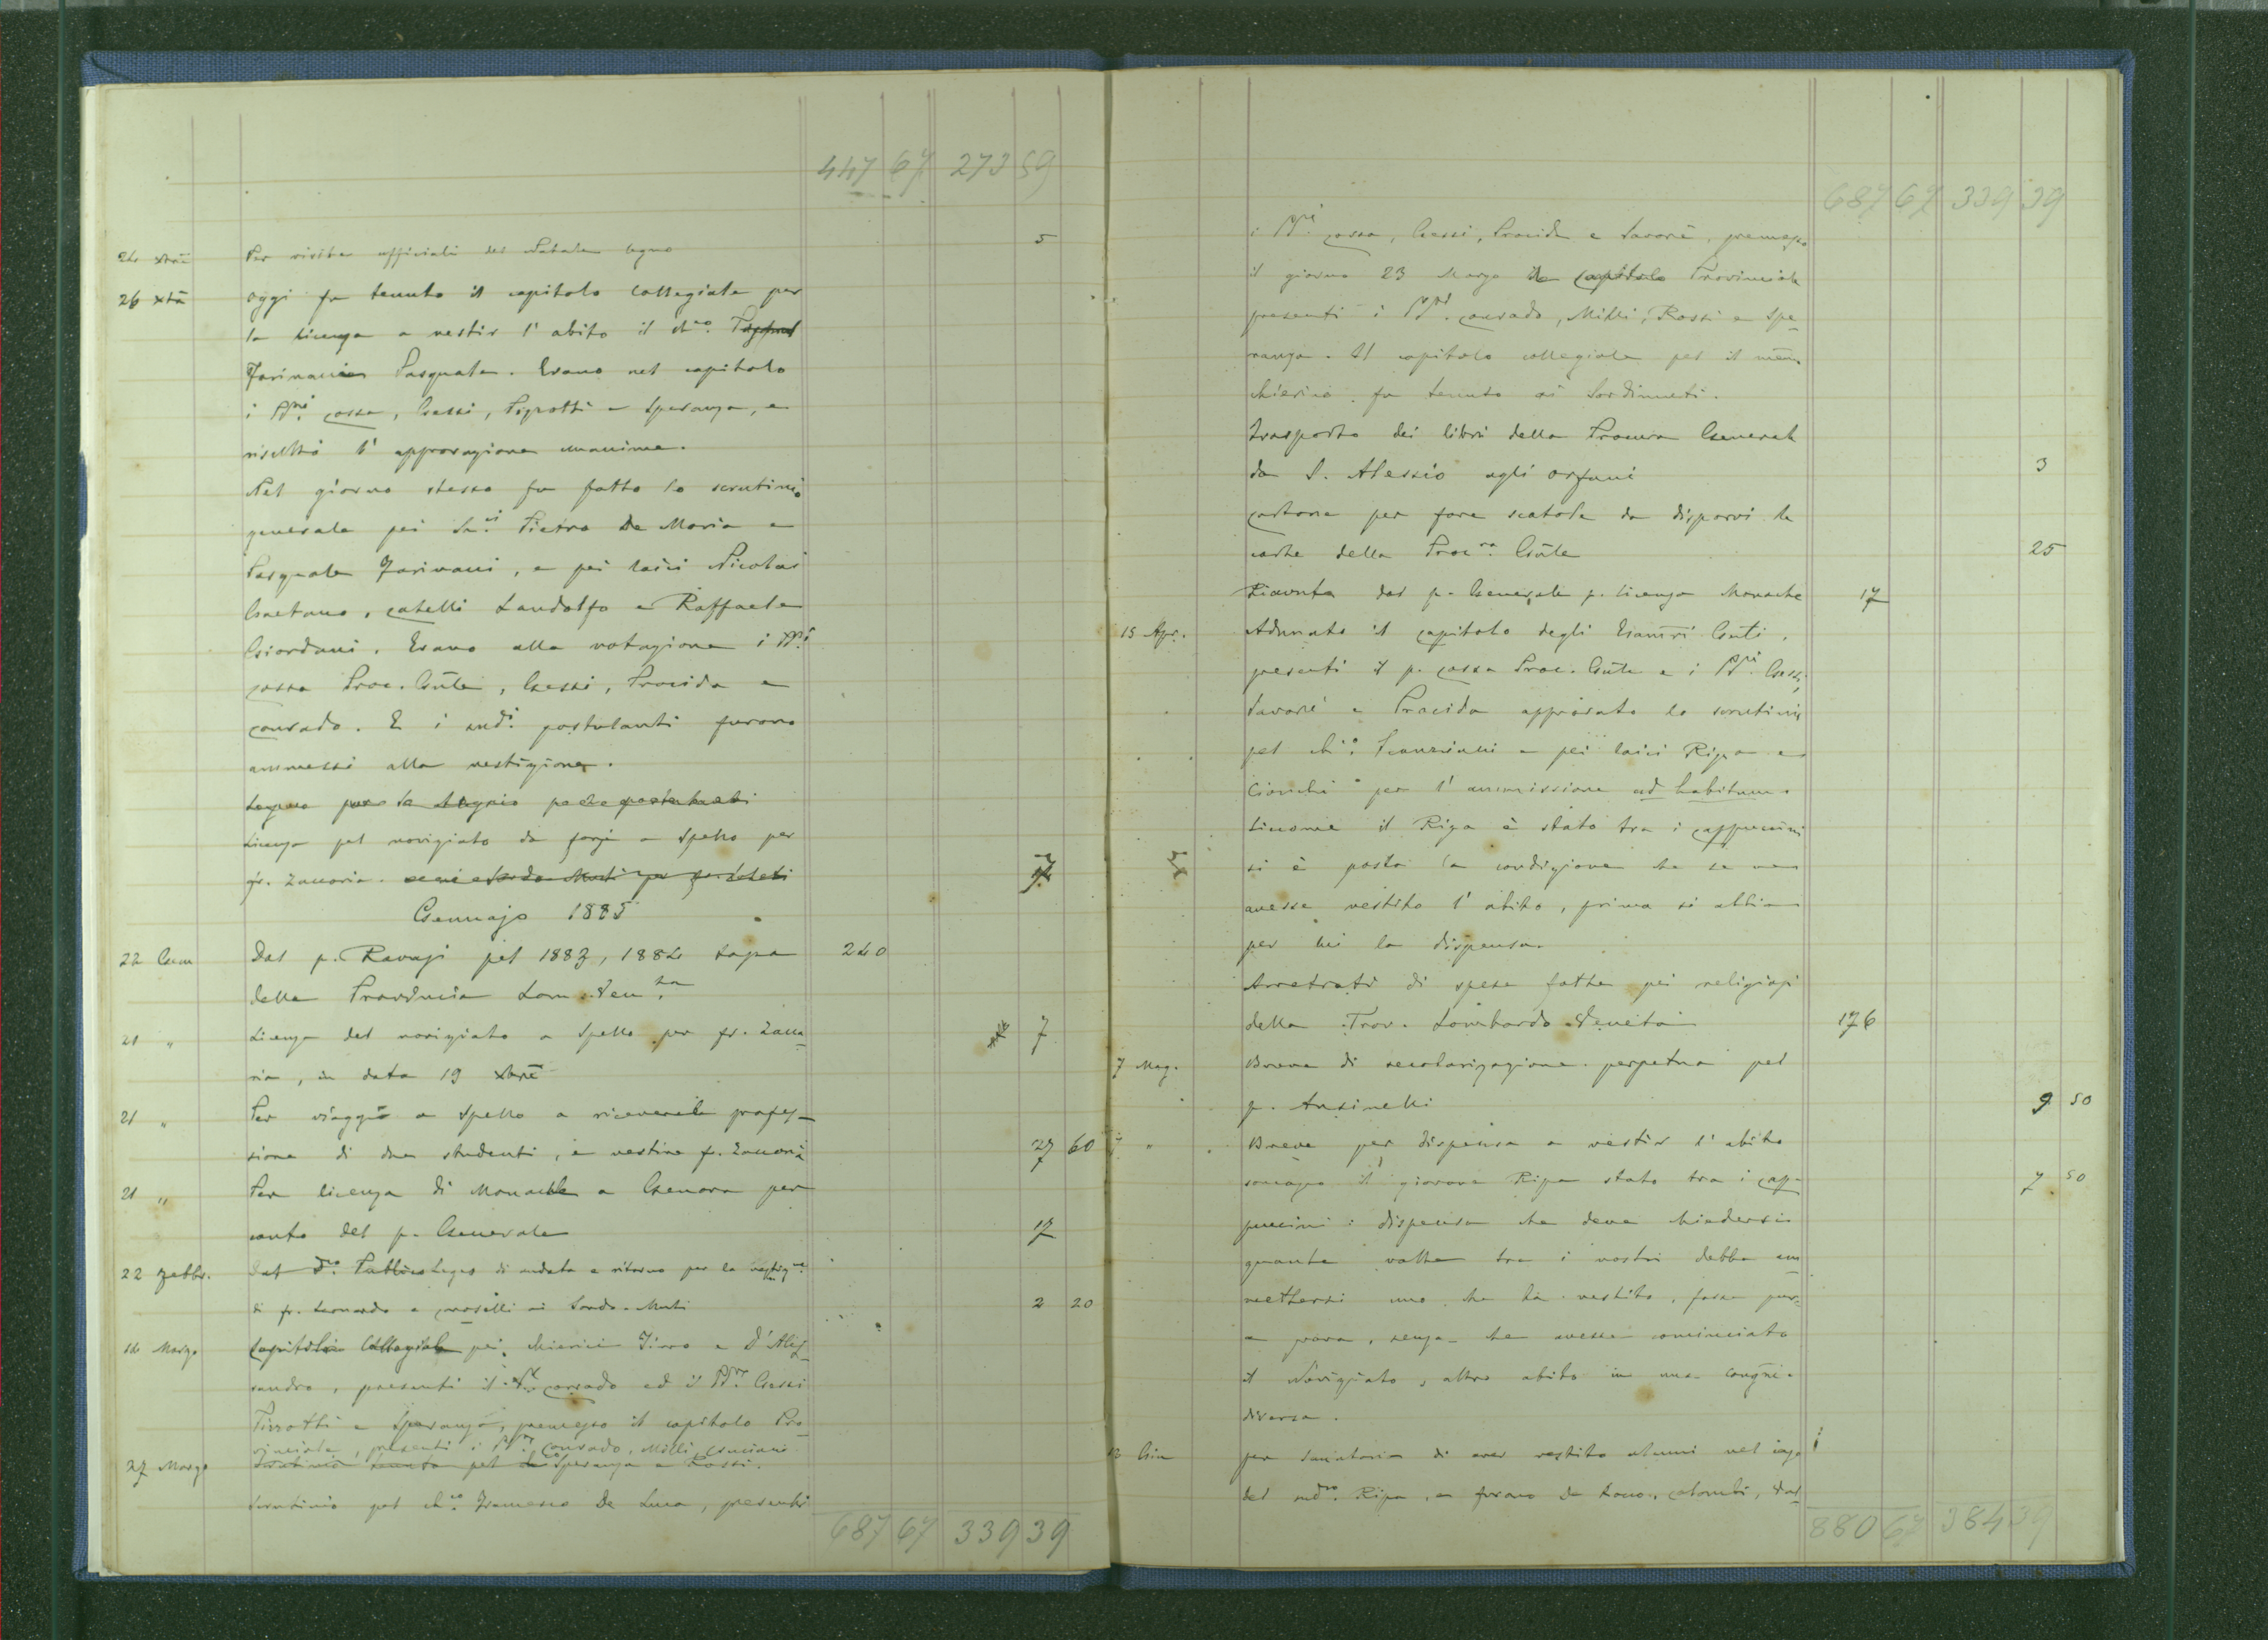 447 67 273 59
24 xbrē Per visite officiali del Natale legno 5
26 xbrē Oggi fu tenuto il capitolo collegiale per
la licenza a vestir l'abito il ch.co
Farinacci Pasquale. Erano nel capitolo
i PP.ri Cossa, Gessi, Pizzotti e Speranza, e
risultò l'approvazione unanime.
Nel giorno stesso fu fatto lo scrutinio
generale pei ch.ci Pietro De Maria e
Pasquale Farinacci, e pei laici Nicolai
Gaetano, Catelli Landolfo e Raffaele
Giordani. Erano alla votazione i PP.ri
Cossa Proc. Gn̄le, Gessi, Procida e
Conrado. E i sud.i postulanti furono
ammessi alla vestizione.
Licenza pel noviziato da farsi a Spello per
fr. Zaccaria. 7
Gennajo 1885
22 Genn Dal p. Ravasi pel 1883, 1884 tassa 240
della Provincia Lom. Ven.ta
21 " Licenza del noviziato a Spello per fr. Zacca
ria, in data 19 xbrē 7
21 " Per viaggio a Spello a ricevere la profes-
sione di due studenti, e vestire fr. Zaccaria 27 60
21 " Per licenza di Monache a Genova per
conto del p. Generale 17
22 Febbr. di andata e ritorno per la vestiz.ne
di fr. Leonardo e Moselli ai Sordo-Muti 2 20
14 Marzo Capitolo Collegiale pei chierici Tirro e D'Ales
sandro, presenti il P. Conrado ed i PP.ri Gessi
Pizzotti e Speranza, premesso il capitolo Pro
vinciale, presenti i PP.ri Conrado, Milli,
27 Marzo Scrutinio tenuto pel Speranza e Rossi.
Scrutinio pel ch.co Francesco De Luca, presenti
687 67 339 39
687 67 339 39
i PP.ri Cossa, Gessi, Procida e Savarè, premesso
il giorno 23 Marzo il Capitolo Provinciale
presenti i PP.ri Conrado, Milli, Rossi e Spe
ranza. Il capitolo collegiale pel il mem.
chierico fu tenuto ai Sordimuti.
Trasporto dei libri della Procura Generale
da S. Alessio agli orfani 3
Cartone per fare scatole da disporvi le
carte della Proc.ra Gn̄le 25
Riavuta dal p. Generale p. licenza Monache 17
15 Apr. Adunato il capitolo degli Esam̄ri Gn̄li,
presenti il p. Cossa Proc. Gn̄le e i PP.ri Gessi,
Savarè e Procida approvato lo scrutinio
pel ch.o e pei laici Ripa e
Cionchi per l'ammissione ad habitum.
Siccome il Ripa è stato tra i cappuccini
si è posta la condizione che se ne
avesse vestito l'abito, prima si abbia
per lui la dispensa.
Arretrati di spese fatte pei religiosi
della Prov. Lombardo-Veneta 176
7 Mag. Breve di secolarizzazione perpetua pel
p. Ansinelli 9 50
" Breve per dispensa a vestir l'abito
somasco il giovane Ripa stato tra i cap- 7 50
puccini: dispensa che deve chiedersi
quante volte tra i nostri debba am
mettersi uno che ha vestito, fosse pur
a prova, senza che avesse cominciato
il Noviziato, altro abito in una congr̄e
diversa.
13 Giu per sanatoria di aver vestito alunni nel caso
del med.mo Ripa, e furono De Luca, Colombi, Dal
880 67 384 39